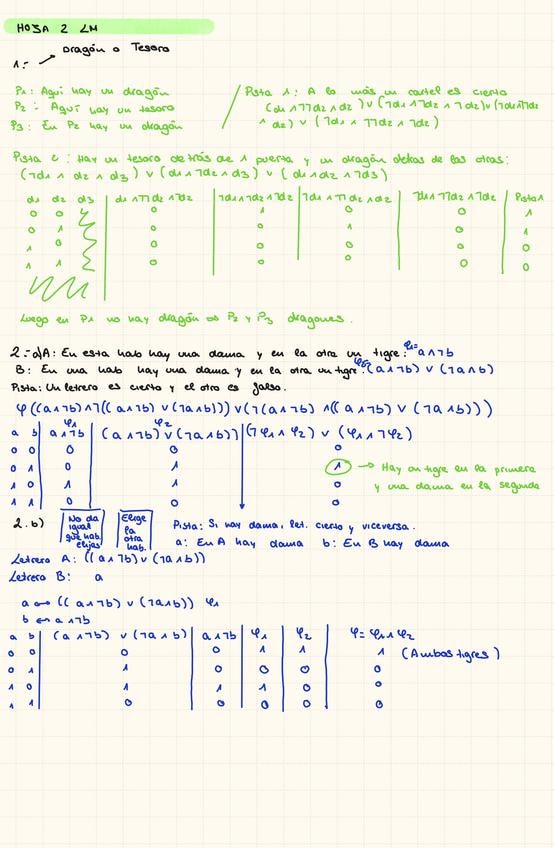 HOJA 2 LM
Dragón o Tesoro
1.-
P1: Aquí hay un dragón
P2: Aquí hay un tesoro
P3: En P2 hay un dragón
Pista 1: A lo más un cartel es cierto
(d1 ∧ ¬¬d2 ∧ d2) ∨ (¬d1 ∧ ¬d2 ∧ ¬d2) ∨ (¬d1 ∧ ¬¬d2
∧ d2) ∨ (¬d1 ∧ ¬¬d2 ∧ ¬d2)
Pista 2: Hay un tesoro detrás de 1 puerta y un dragón detras de las otras:
(¬d1 ∧ d2 ∧ d3) ∨ (d1 ∧ ¬d2 ∧ d3) ∨ (d1 ∧ d2 ∧ ¬d3)
d1 d2 d3 | d1 ∧ ¬¬d2 ∧ ¬d2 | ¬d1 ∧ ¬d2 ∧ ¬d2 | ¬d1 ∧ ¬¬d2 ∧ d2 | ¬d1 ∧ ¬¬d2 ∧ ¬d2 | Pista 1
0 0 | 0 | 1 | 0 | 0 | 1
0 1 | 0 | 0 | 1 | 0 | 1
1 0 | 0 | 0 | 0 | 0 | 0
1 1 | 0 | 0 | 0 | 0 | 0
Luego en P1 no hay dragón P2 y P3 dragones.
2.- a) A: En esta hab hay una dama y en la otra un tigre: φ1= a∧¬b
B: En una hab hay una dama y en la otra un tigre: φ2= (a∧¬b) ∨ (¬a∧b)
Pista: Un letrero es cierto y el otro es falso.
φ((a∧¬b)∧¬((a∧¬b) ∨ (¬a∧b))) ∨ (¬(a∧¬b) ∧((a∧¬b) ∨ (¬a∧b)))
φ1 φ2
a b | a∧¬b | (a∧¬b) ∨ (¬a∧b) | (¬φ1∧φ2) ∨ (φ1∧¬φ2)
0 0 | 0 | 0 | 0
0 1 | 0 | 1 | 1 → Hay un tigre en la primera
y una dama en la segunda
1 0 | 1 | 1 | 0
1 1 | 0 | 0 | 0
2.b) No da igual qué hab. elijas
Elige la otra hab.
Pista: Si hay dama, let. cierto y viceversa.
a: En A hay dama b: En B hay dama
Letrero A: ((a∧¬b) ∨ (¬a∧b))
Letrero B: a
a ↔ ((a∧¬b) ∨ (¬a∧b)) φ1
b ↔ a∧¬b
a b | (a∧¬b) ∨ (¬a∧b) | a∧¬b | φ1 | φ2 | φ= φ1∧φ2
0 0 | 0 | 0 | 1 | 1 | 1 (Ambos tigres)
0 1 | 1 | 0 | 0 | 0 | 0
1 0 | 1 | 1 | 1 | 0 | 0
1 1 | 0 | 0 | 0 | 0 | 0